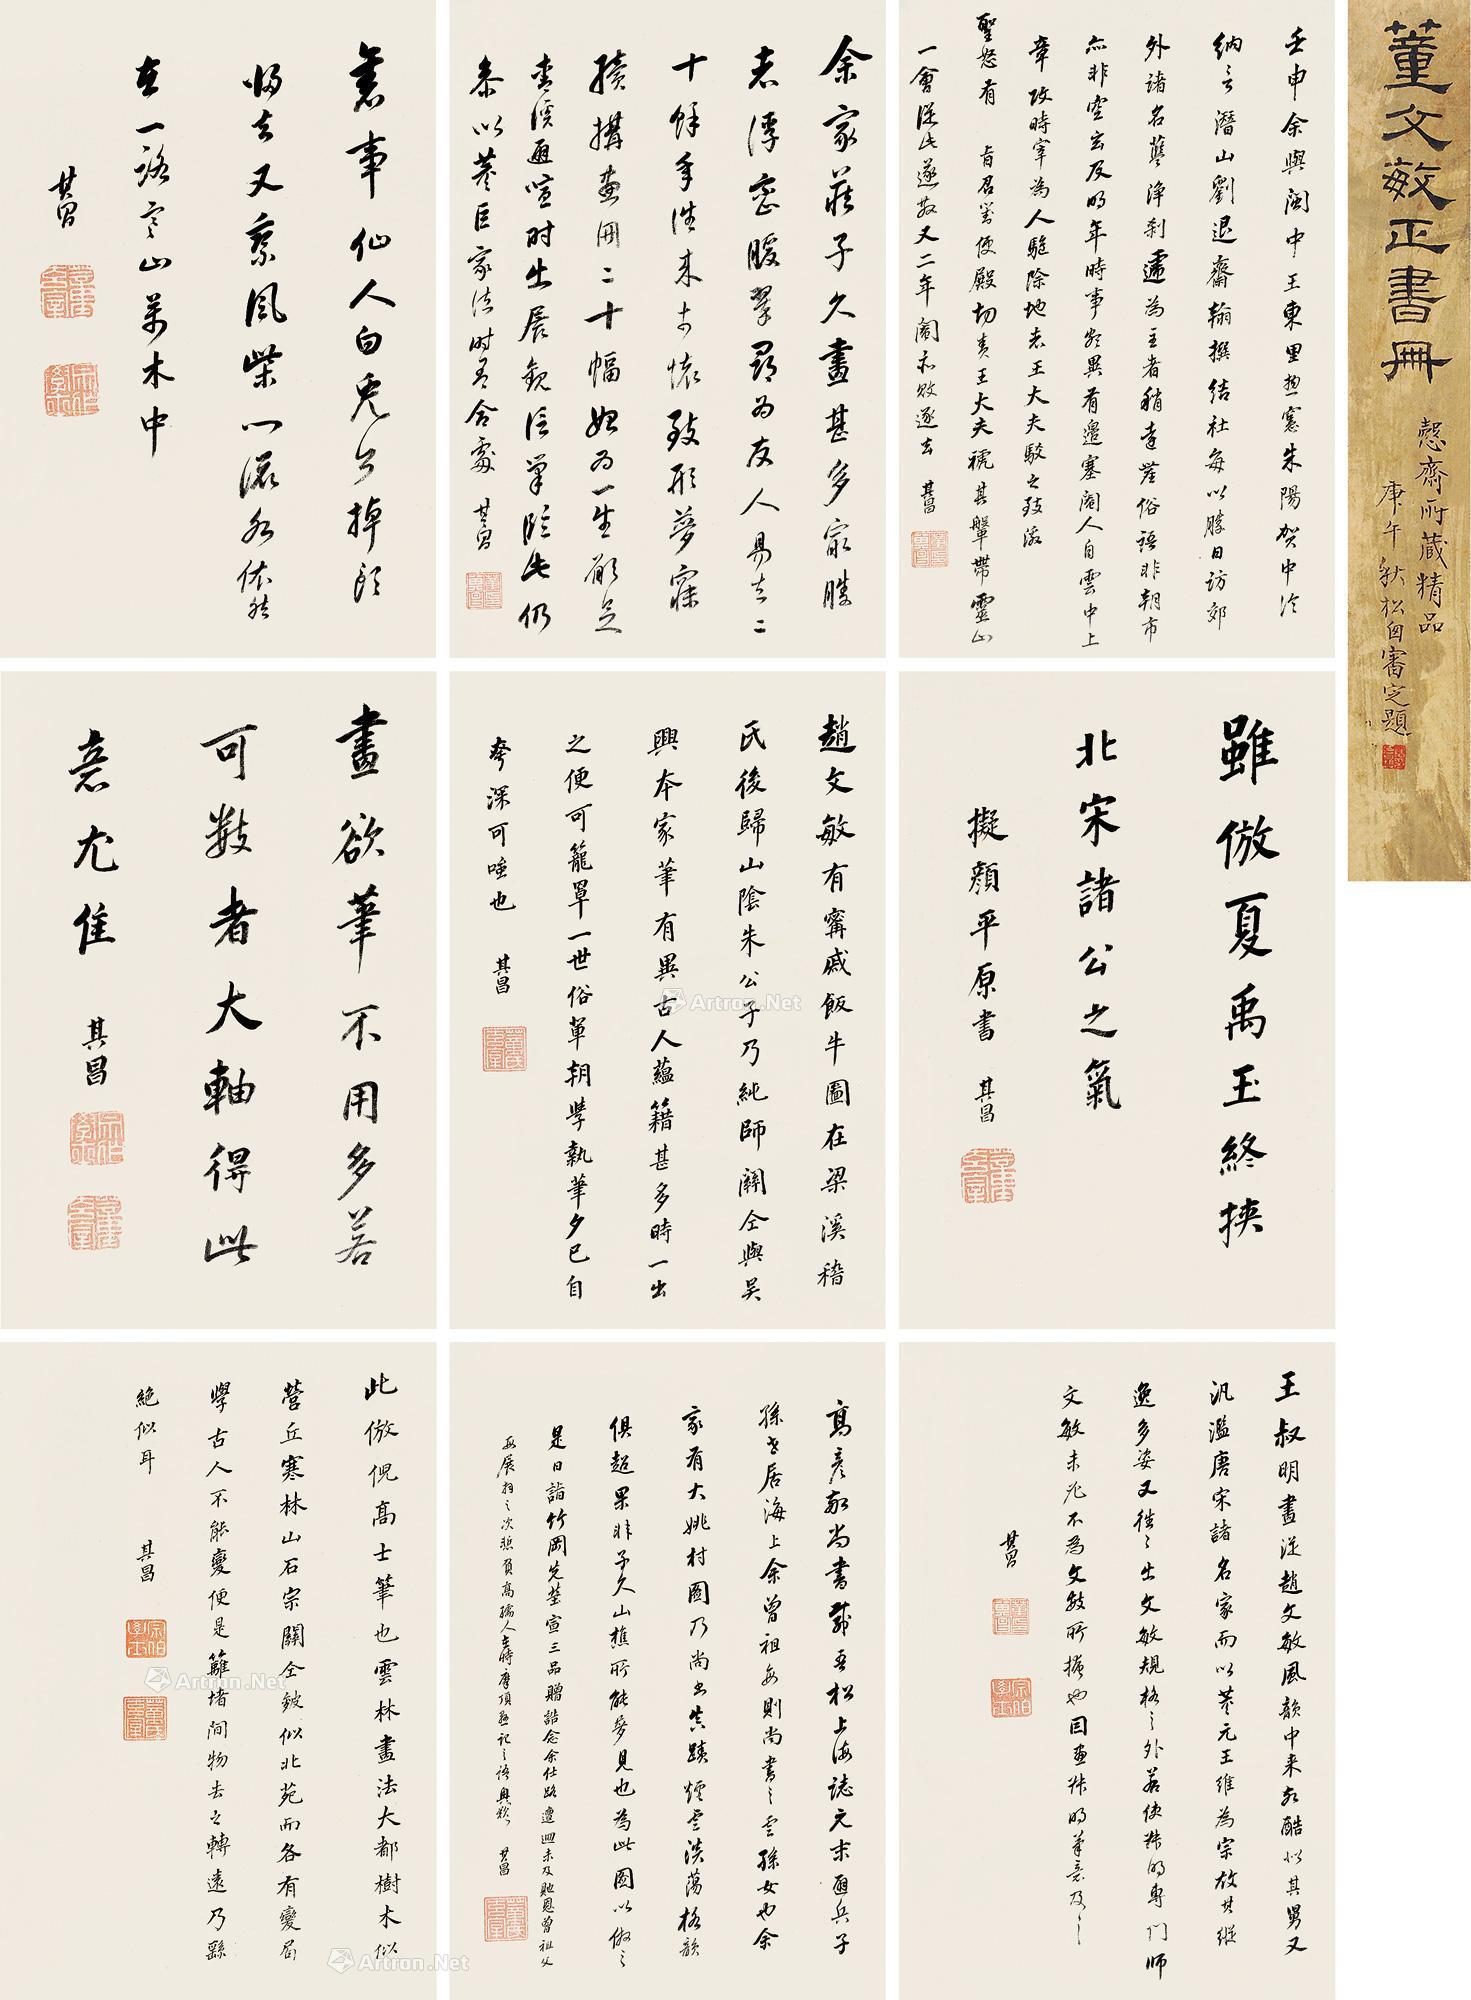 董文敏正書冊
愙齋所藏精品
庚午秋松囱審定題
壬申余與閩中王東里惣憲朱陽賀中泠
納言潛山劉退齋翰撰結社每以勝日訪郊
外諸名藍淨刹遞為主者稍遠塵俗語非朝市
亦非空玄及明年時事發異有邊塞閹人自雲中上
章攻時宰為人驅除地者王大夫駁之致激
聖怒有 旨召對便殿切責王大夫褫其鞶帶靈山
一會從此遂散又二年閹亦敗逐去 其昌
余家藏子久畫甚多最勝
者浮巒暖翠尋為友人易去二
十餘年往來於懷致形夢寐
續搆畫冊二十幅始為一生願足
東溪
泰以董巨家法時有合處 其昌
舊事仙人白兔公掉頭
歸去又乘風柴門流水依然
在一路寒山萬木中
其昌
雖倣夏禹玉終挾
北宋諸公之氣
擬顏平原書 其昌
趙文敏有甯戚飯牛圖在梁溪稽
氏後歸山陰朱公子乃純師關仝與吳
興本家筆有異古人蘊籍甚多時一出
之便可籠罩一世俗輩朝學執筆夕已自
夸深可唾也 其昌
畫欲筆不用多若
可數者大軸得此
意尤佳 其昌
王叔明畫從趙文敏風韻中來故酷似其舅又
汎濫唐宋諸名家而以董元王維為宗故其縱
逸多姿又往往出文敏規格之外若使叔明專門師
文敏未必不為文敏所掩也因畫叔明筆意及之
其昌
高彥敬尚書載吾松上海誌元末避兵子
孫世居海上余曾祖母則尚書之雲孫女也余
家有大姚村圖乃尚書真蹟烟雲淡蕩格韻
俱超果非子久山樵所能夢見也為此圖以倣之
是日詣竹岡先塋宣三品贈誥念余仕路邅迴未及貤恩曾祖父
母展拜之次悲負高孺人在時摩頂懸記之語興歎 其昌
此倣倪高士筆也雲林畫法大都樹木似
營丘寒林山石宗關仝皴似北苑而各有變局
學古人不能變便是籬堵間物去之轉遠乃繇
絕似耳 其昌
Artron.Net
Artron.Net
Artron.Net
Artron.Net